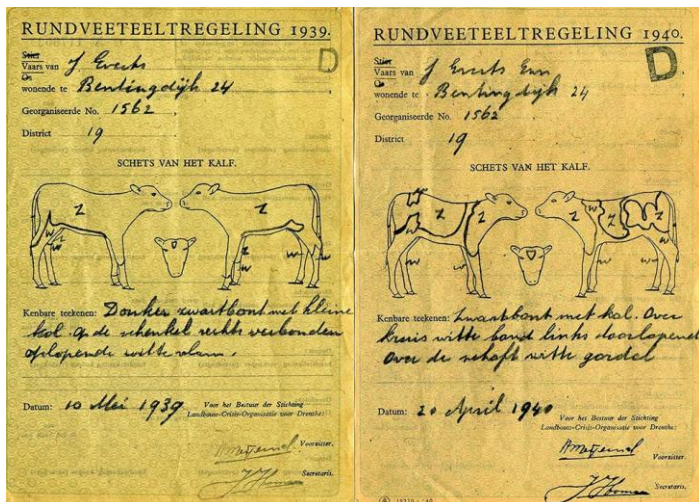 RUNDVEETEELTREGELING 1939.
D
Stier
Vaars van J Everts
Os
wonende te Bentingdijk 24
Georganiseerde No. 1562
District 19
SCHETS VAN HET KALF.
Z Z
W Z W W
Kenbare teekenen: Donker zwartbont met kleine
kol. Op de schenkel rechts verbonden
oplopende witte vlam.
Datum: 10 Mei 1939
Voor het Bestuur der Stichting
Landbouw-Crisis-Organisatie voor Drenthe:
Voorzitter.
Secretaris.
RUNDVEETEELTREGELING 1940.
D
Stier
Vaars van J Everts
Os
wonende te Bentingdijk 24
Georganiseerde No. 1562
District 19
SCHETS VAN HET KALF.
W Z Z Z Z Z
W W W
Kenbare teekenen: Zwartbont met kol. Over
kruis witte band links doorlopend
Over de schoft witte gordel
Datum: 20 April 1940
Voor het Bestuur der Stichting
Landbouw-Crisis-Organisatie voor Drenthe:
Voorzitter.
Secretaris.